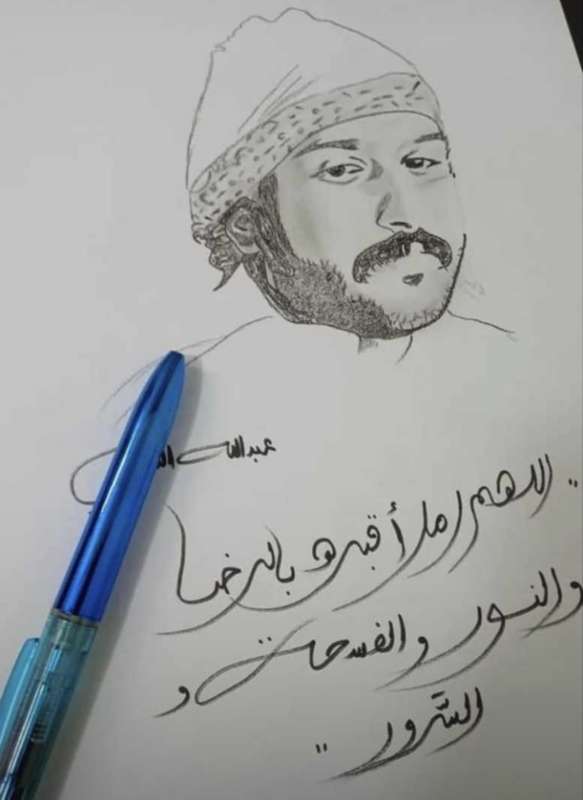 عبدالله
.. اللهم املأ قبره بالرضا
والنور والفسحة و
السرور ..